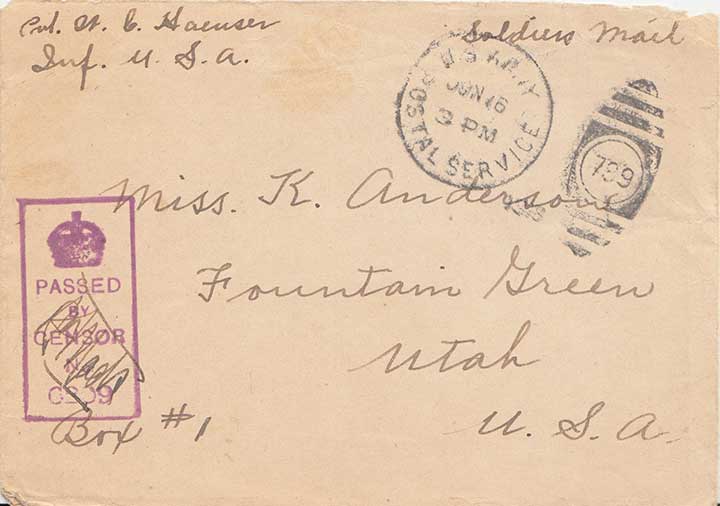 Pvt. W. C. Haeuser
Inf. U. S. A.
Soldiers Mail
U S ARMY
POSTAL SERVICE
JUN 16
3 PM
789
Miss. K. Anderson
Fountain Green
Utah
U. S. A.
Box #1
PASSED
BY
CENSOR
No